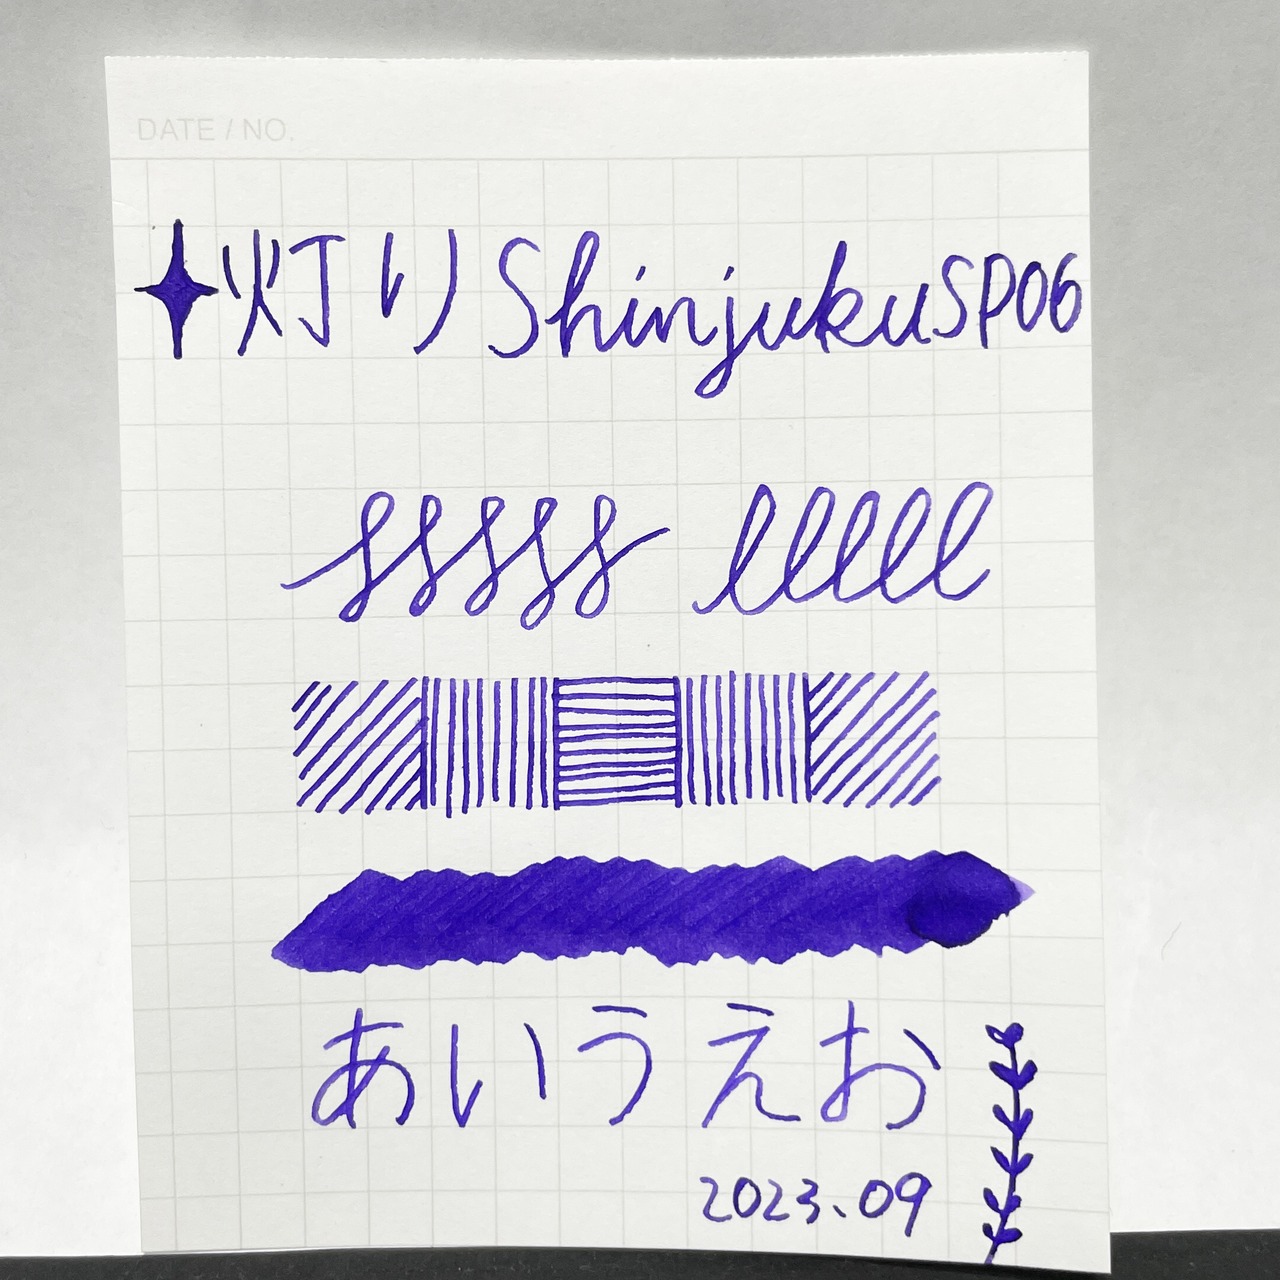 DATE / NO.
灯り Shinjuku SP06
sssss lllll
あいうえお
2023.09